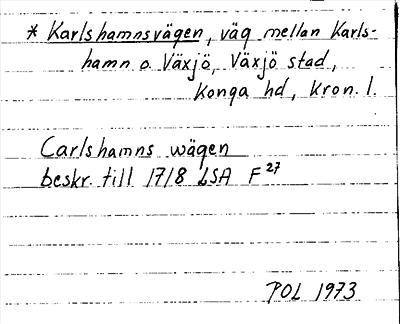 * Karlshamnsvägen, väg mellan Karls-
hamn o. Växjö, Växjö stad,
Konga hd, Kron. l.
Carlshamns wägen
beskr. till 1718 LSA F 27
POL 1973